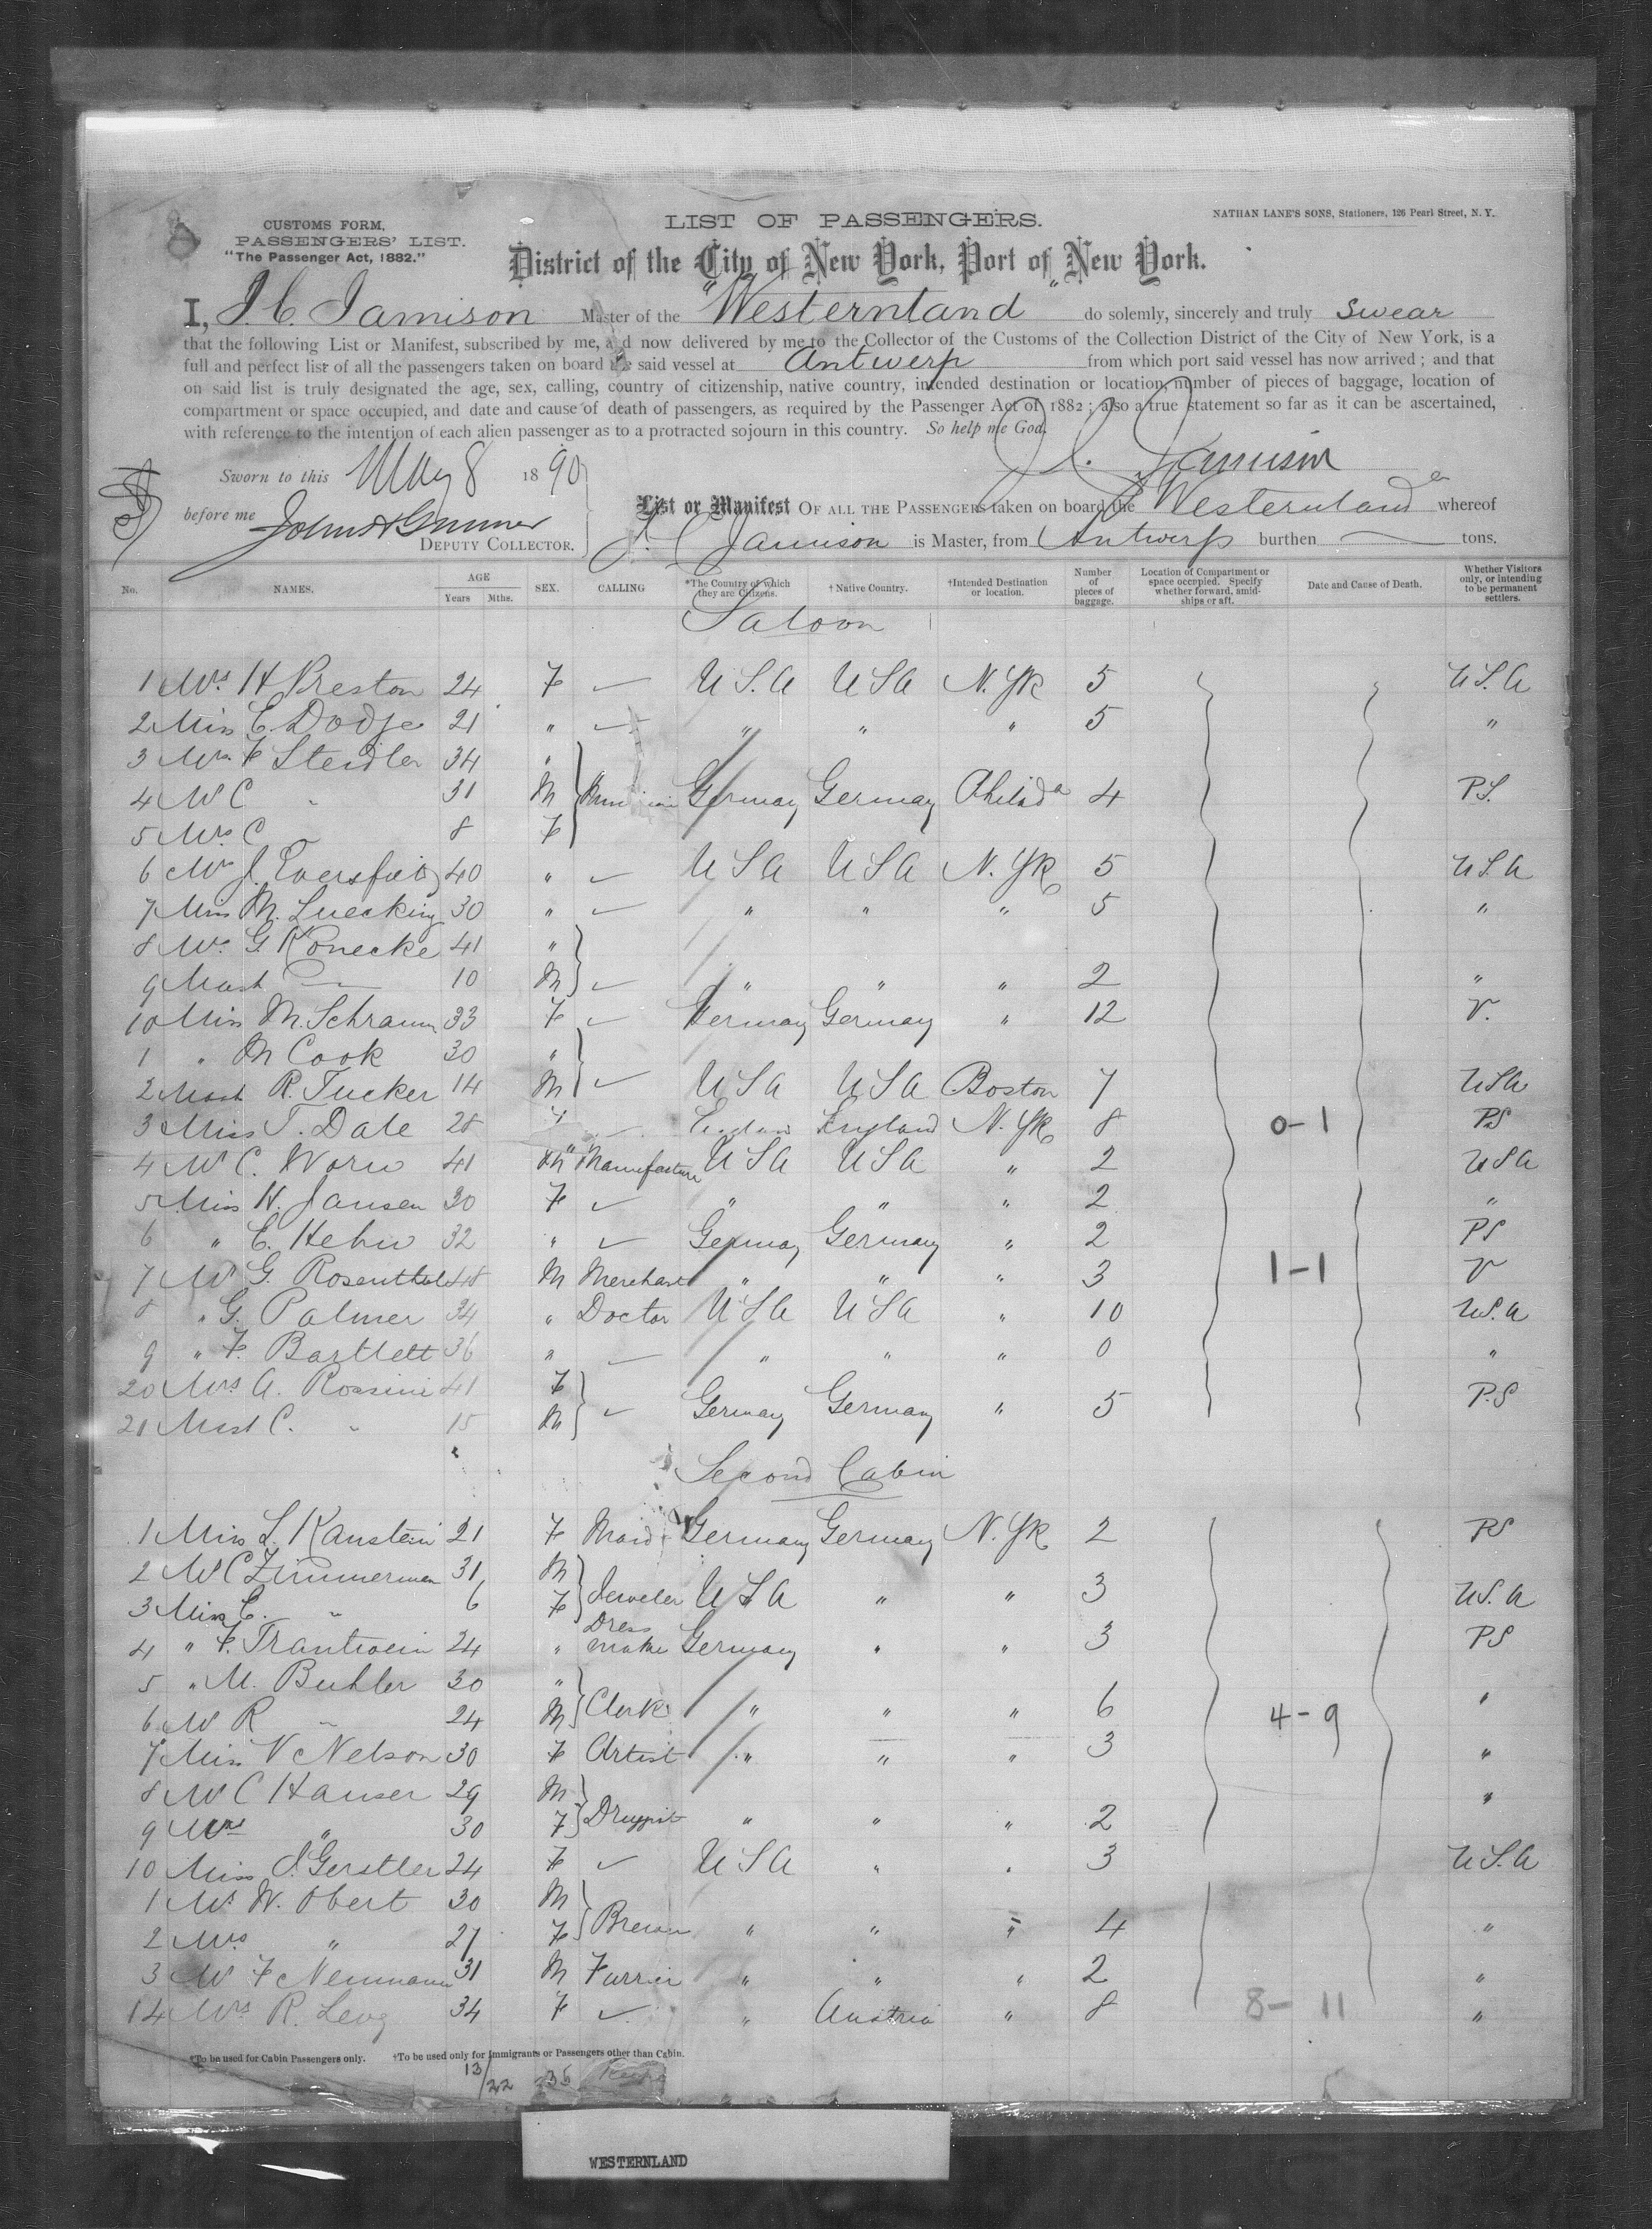 CUSTOMS FORM,
PASSENGERS' LIST.
"The Passenger Act, 1882."
LIST OF PASSENGERS.
NATHAN LANE'S SONS, Stationers, 126 Pearl Street, N. Y.
District of the City of New York, Port of New York.
I, J. C. Jamison Master of the "Westernland" do solemnly, sincerely and truly swear
that the following List or Manifest, subscribed by me, and now delivered by me to the Collector of the Customs of the Collection District of the City of New York, is a
full and perfect list of all the passengers taken on board the said vessel at Antwerp from which port said vessel has now arrived; and that
on said list is truly designated the age, sex, calling, country of citizenship, native country, intended destination or location, number of pieces of baggage, location of
compartment or space occupied, and date and cause of death of passengers, as required by the Passenger Act of 1882; also a true statement so far as it can be ascertained,
with reference to the intention of each alien passenger as to a protracted sojourn in this country. So help me God.
J. C. Jamison
Sworn to this May 8 1890
before me
DEPUTY COLLECTOR.
List or Manifest OF ALL THE PASSENGERS taken on board the Westernland whereof
J. C. Jamison is Master, from Antwerp burthen tons.
No. NAMES. AGE Years Mths. SEX. CALLING *The Country of which they are Citizens. †Native Country. †Intended Destination or location. Number of pieces of baggage. Location of Compartment or space occupied. Specify whether forward, amidships or aft. Date and Cause of Death. Whether Visitors only, or intending to be permanent settlers.
Saloon
1 Mrs H Preston 24 F U.S.A U S A N. Yk 5 U.S.A
2 Miss E. Dodge 21 " " " " 5 "
3 Mrs F Steidler 34 "
4 Mr C " 31 M Germany Germany Philada 4 P.S.
5 C 8 F
6 J. 40 " U S A U S A N. Yk 5 U.S.A
7 Miss M. Luecking 30 " " " " 5 "
8 Mrs G Konecke 41 "
9 Mast 10 M " " " 2 "
10 Miss M. Schramm 33 F Germany Germany " 12 V.
1 " M Cook 30 "
2 Mast R. Tucker 14 M U S A U S A Boston 7 USA
3 Miss T. Dale 28 England N. Yk 8 0-1 PS
4 Mr C. Worn 41 M U S A U S A " 2 U S A
5 Miss H. Jansen 30 F " " " 2 "
6 " E. Hehn 32 " Germany Germany " 2 PS
7 Mr G. Rosenthal 48 M Merchant " " " 3 1-1 V
8 " G. Palmer 34 " Doctor U S A U S A " 10 U.S.A
9 " F. Bartlett 36 " " " " 0 "
20 Mrs A. Rossini 41 F
21 Mast C. " 15 M Germany Germany " 5 P.S
Second Cabin
1 Miss L. Kanstein 21 F Maid Germany Germany N. Yk 2 PS
2 Mr C Zimmerman 31 M
3 Miss E. " 6 F Jeweler U S A " " 3 U.S.A
4 " F. Trantwein 24 " Dress make Germany " " 3 PS
5 " M. Buhler 30 "
6 Mr R " 24 M Clerk " " " 6 4-9 "
7 Miss V Nelson 30 F Artist " " " 3 "
8 Mr C Hauser 29 M "
9 Mrs " 30 F Druggist " " " 2
10 Miss J. Gerstler 24 F U S A " " 3 U.S.A
1 Mr W. Obert 30 M
2 Mrs " 27 F " " " 4 "
3 Mr F Neumann 31 M Furrier " " " 2 "
14 Mrs R. Levy 34 F " Austria " 8 8-11 "
*To be used for Cabin Passengers only. †To be used only for Immigrants or Passengers other than Cabin.
13/22 236
WESTERNLAND